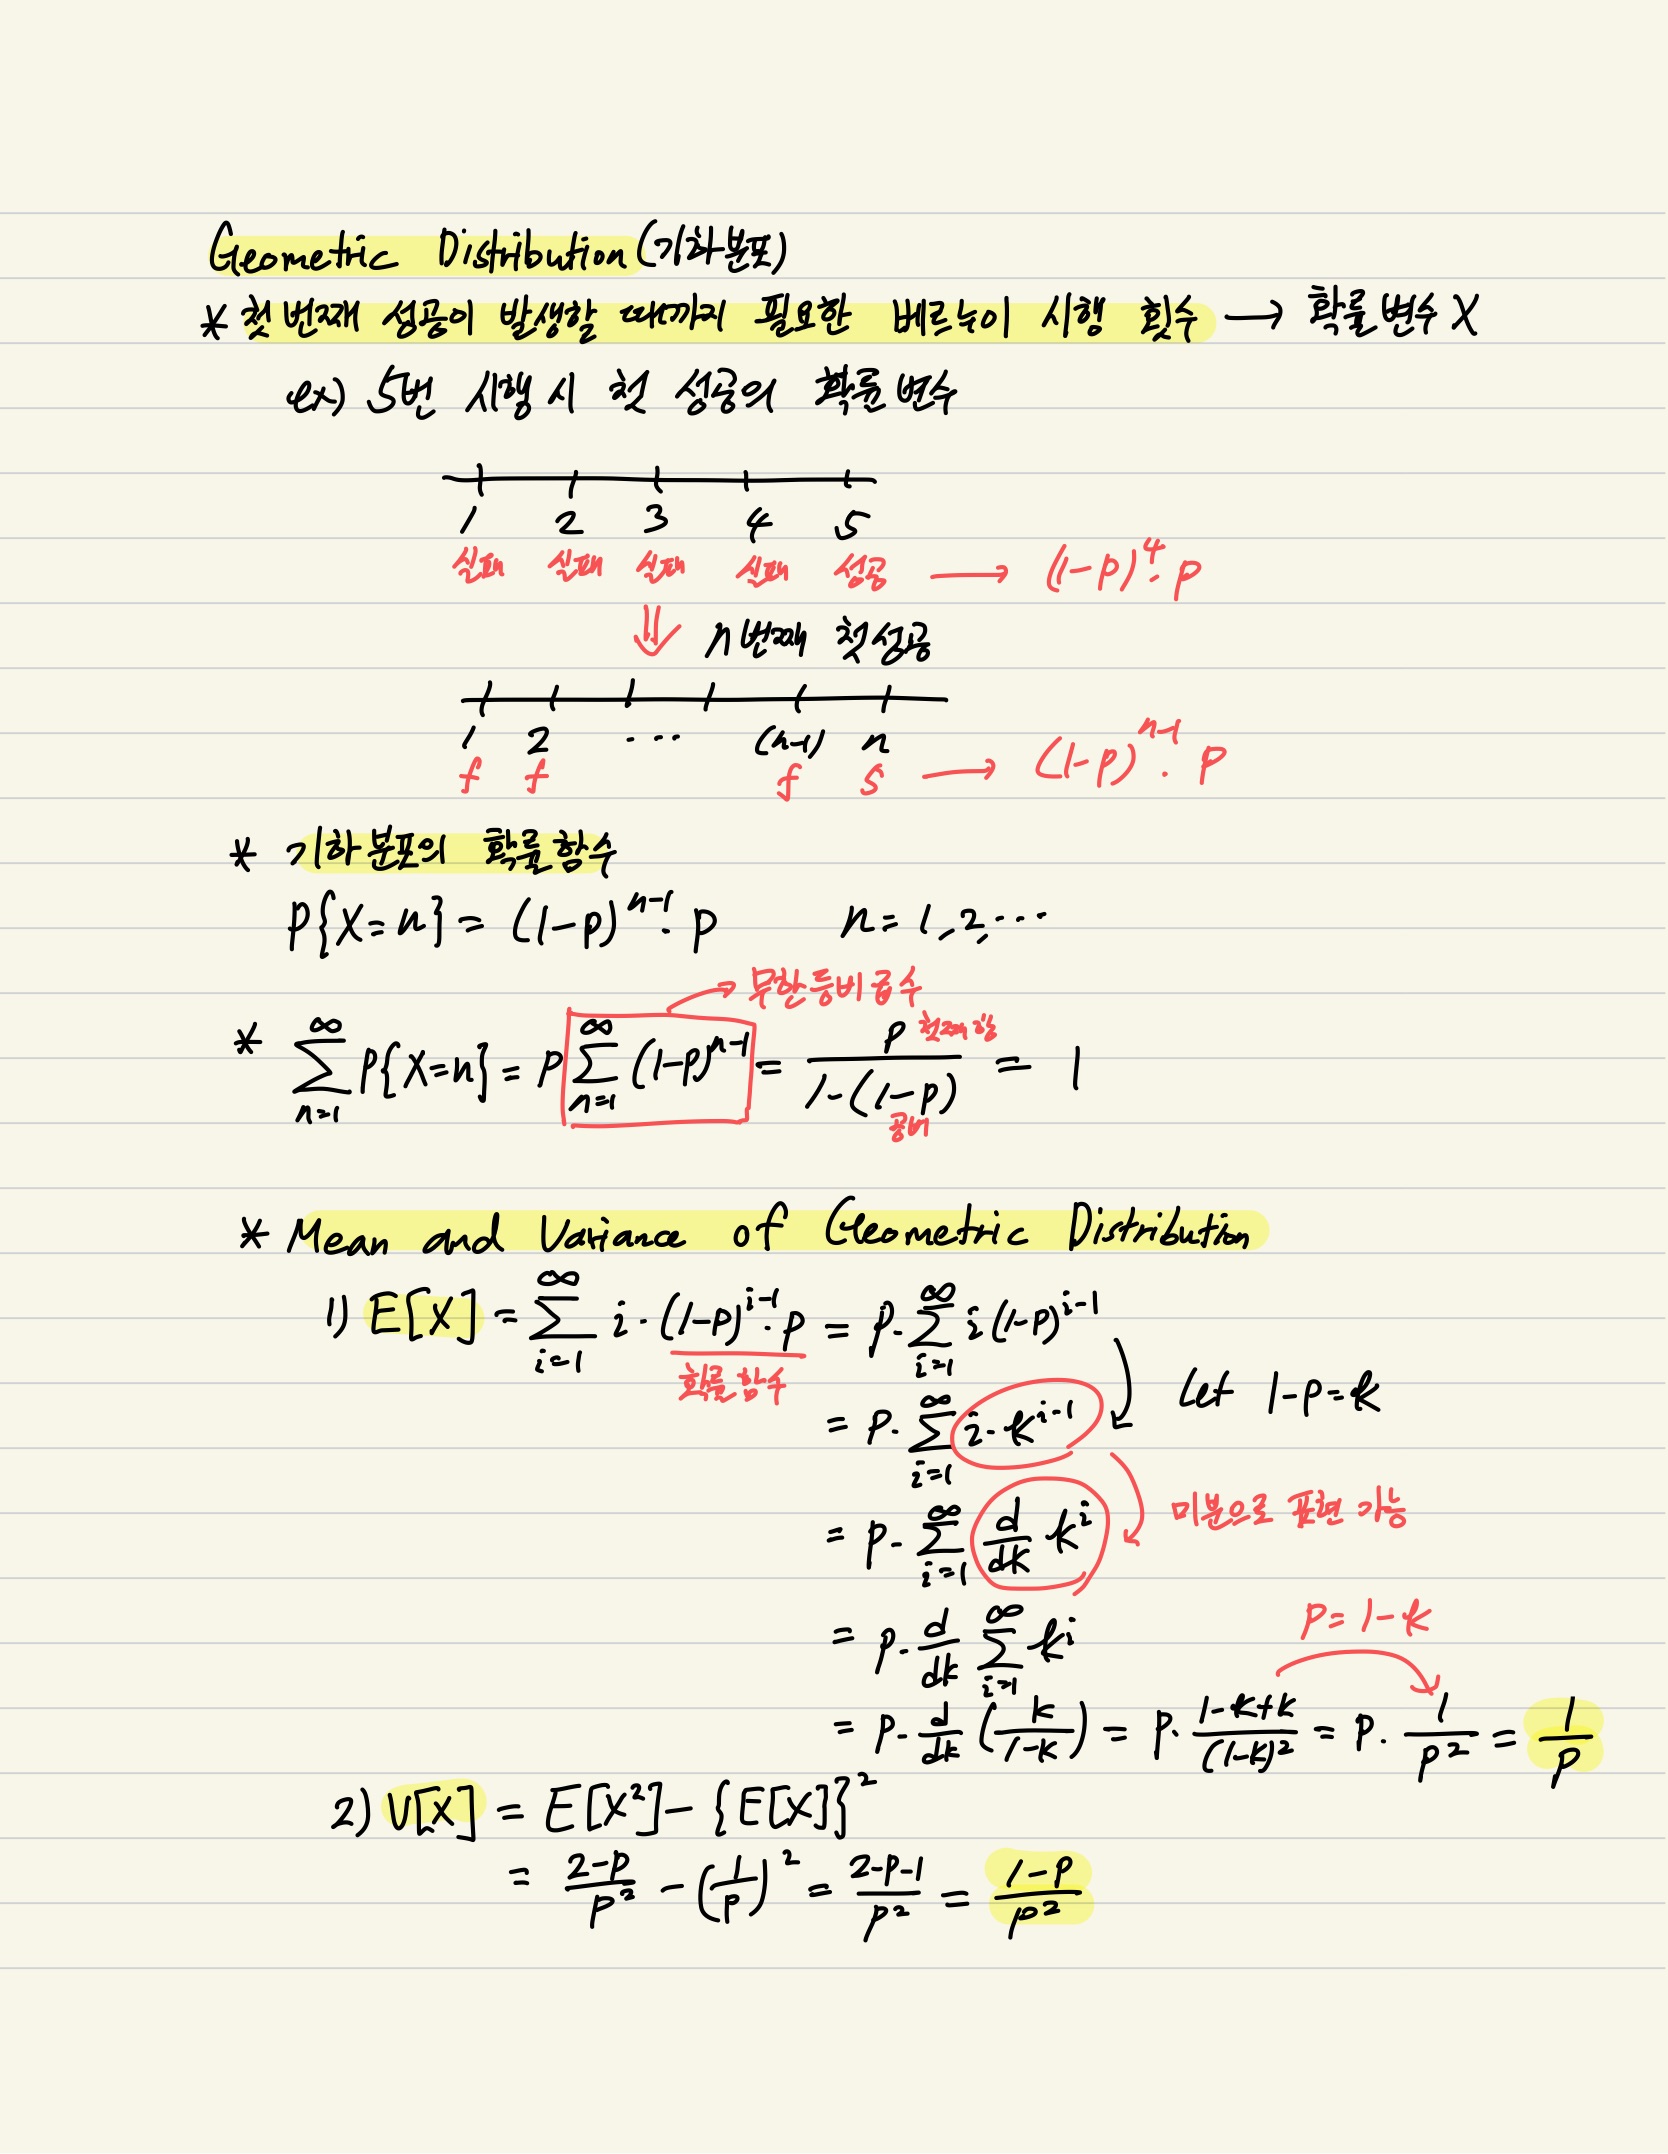 Geometric Distribution (기하분포)
* 첫 번째 성공이 발생할 때까지 필요한 베르누이 시행 횟수 → 확률변수 X
ex) 5번 시행 시 첫 성공의 확률변수
1 2 3 4 5
실패 실패 실패 실패 성공 → (1-p)^4 · p
⇓ n번째 첫성공
1 2 ··· (n-1) n
f f f s → (1-p)^{n-1} · p
* 기하분포의 확률함수
P{X=n} = (1-p)^{n-1} · p n = 1, 2, ···
→ 무한등비급수
* ∑_{n=1}^{∞} P{X=n} = p ∑_{n=1}^{∞} (1-p)^{n-1} = p / (1-(1-p)) = 1
첫째항
공비
* Mean and Variance of Geometric Distribution
1) E[X] = ∑_{i=1}^{∞} i · (1-p)^{i-1} · p = p · ∑_{i=1}^{∞} i (1-p)^{i-1}
확률함수
= p · ∑_{i=1}^{∞} i · k^{i-1} Let 1-p=k
= p · ∑_{i=1}^{∞} d/dk k^i 미분으로 표현 가능
= p · d/dk ∑_{i=1}^{∞} k^i p=1-k
= p · d/dk (k/(1-k)) = p · (1-k+k)/(1-k)^2 = p · 1/p^2 = 1/p
2) V[X] = E[X^2] - {E[X]}^2
= (2-p)/p^2 - (1/p)^2 = (2-p-1)/p^2 = (1-p)/p^2